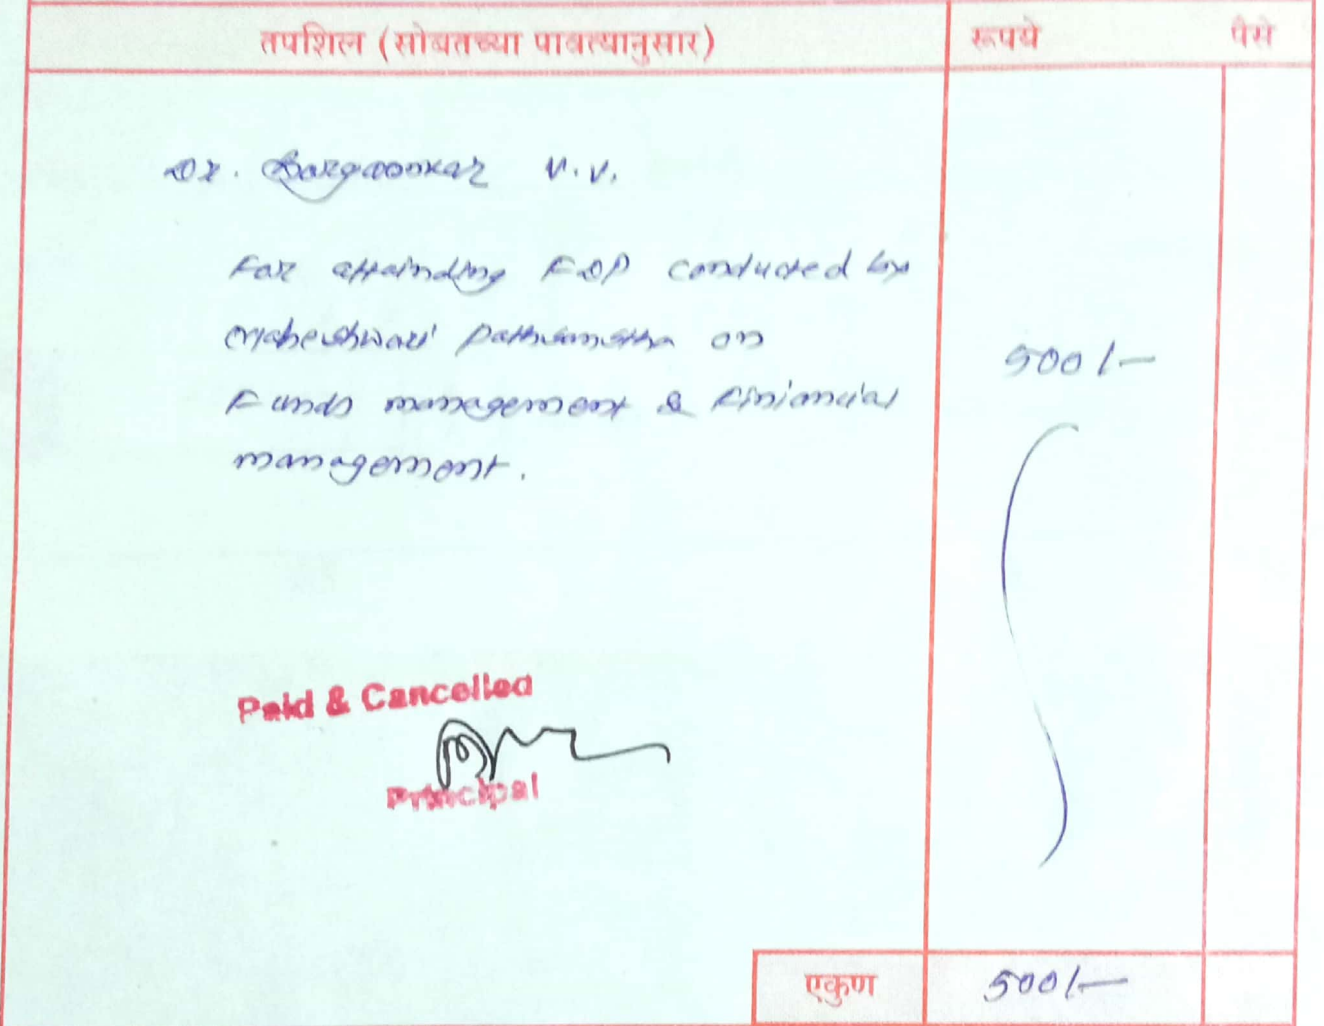 तपशिल (सोबतच्या पावत्यानुसार) रूपये पैसे
Dr. Borgaonkar V.V.
For attainding FDP conducted by
Maheshwari Pathsanstha on
500/-
Funds management & Finiancial
management.
Paid & Cancelled
Principal
एकुण 500/-